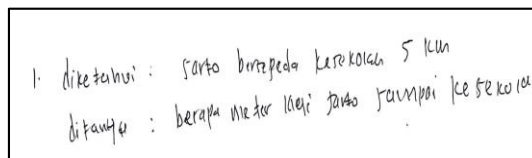 1. diketahui : sarto bersepeda kesekolah 5 km
ditanya : berapa meter lagi sarto sampai kesekola